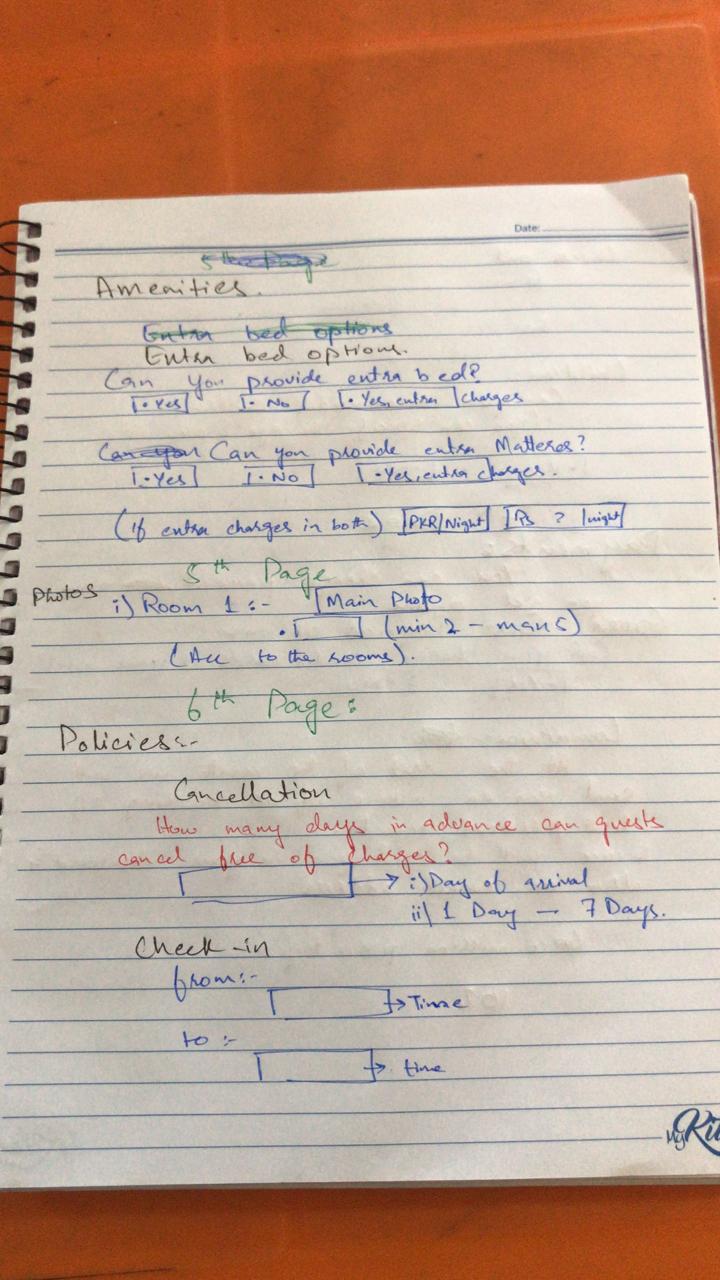 Date:
5th Page
Amenities.
Extra bed options
Extra bed options.
Can you provide extra bed?
• Yes • No • Yes, extra charges
Can you Can you provide extra Matteres?
• Yes • No • Yes, extra charges.
(if extra charges in both) PKR/Night Rs ? /night
5th Page
Photos i) Room 1 :- Main Photo
• (min 2 - max 5)
(Acc to the rooms).
6th Page:
Policies:-
Cancellation
How many days in advance can guests
cancel free of charges?
→ i) Day of arrival
ii) 1 Day — 7 Days.
Check-in
from:-
→ Time
to :-
→ time
My